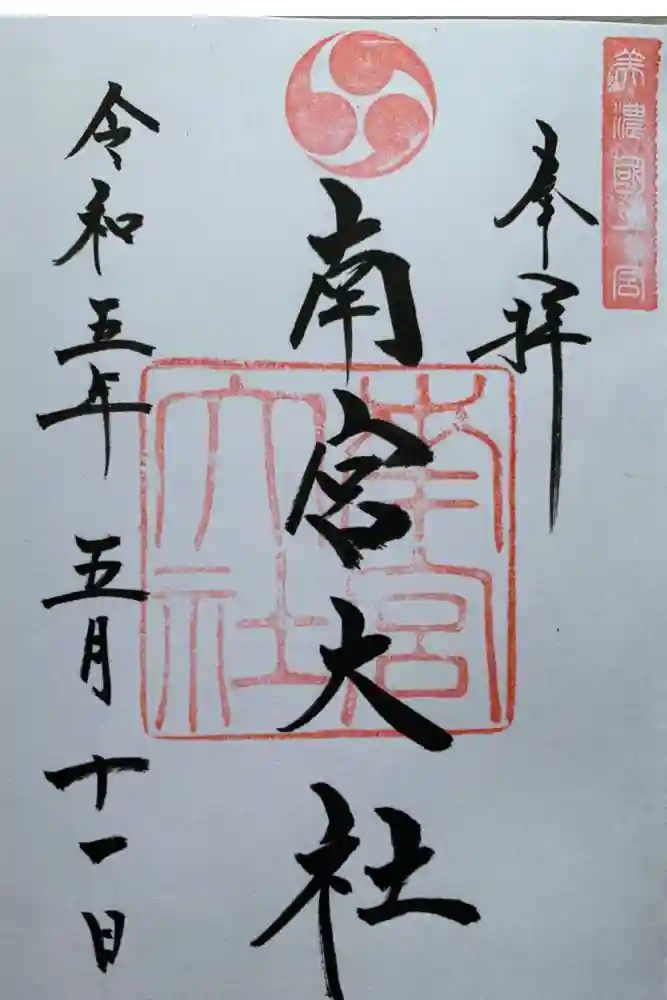 美濃國一宮
奉拝
南宮大社
南宮大社
令和五年 五月十一日